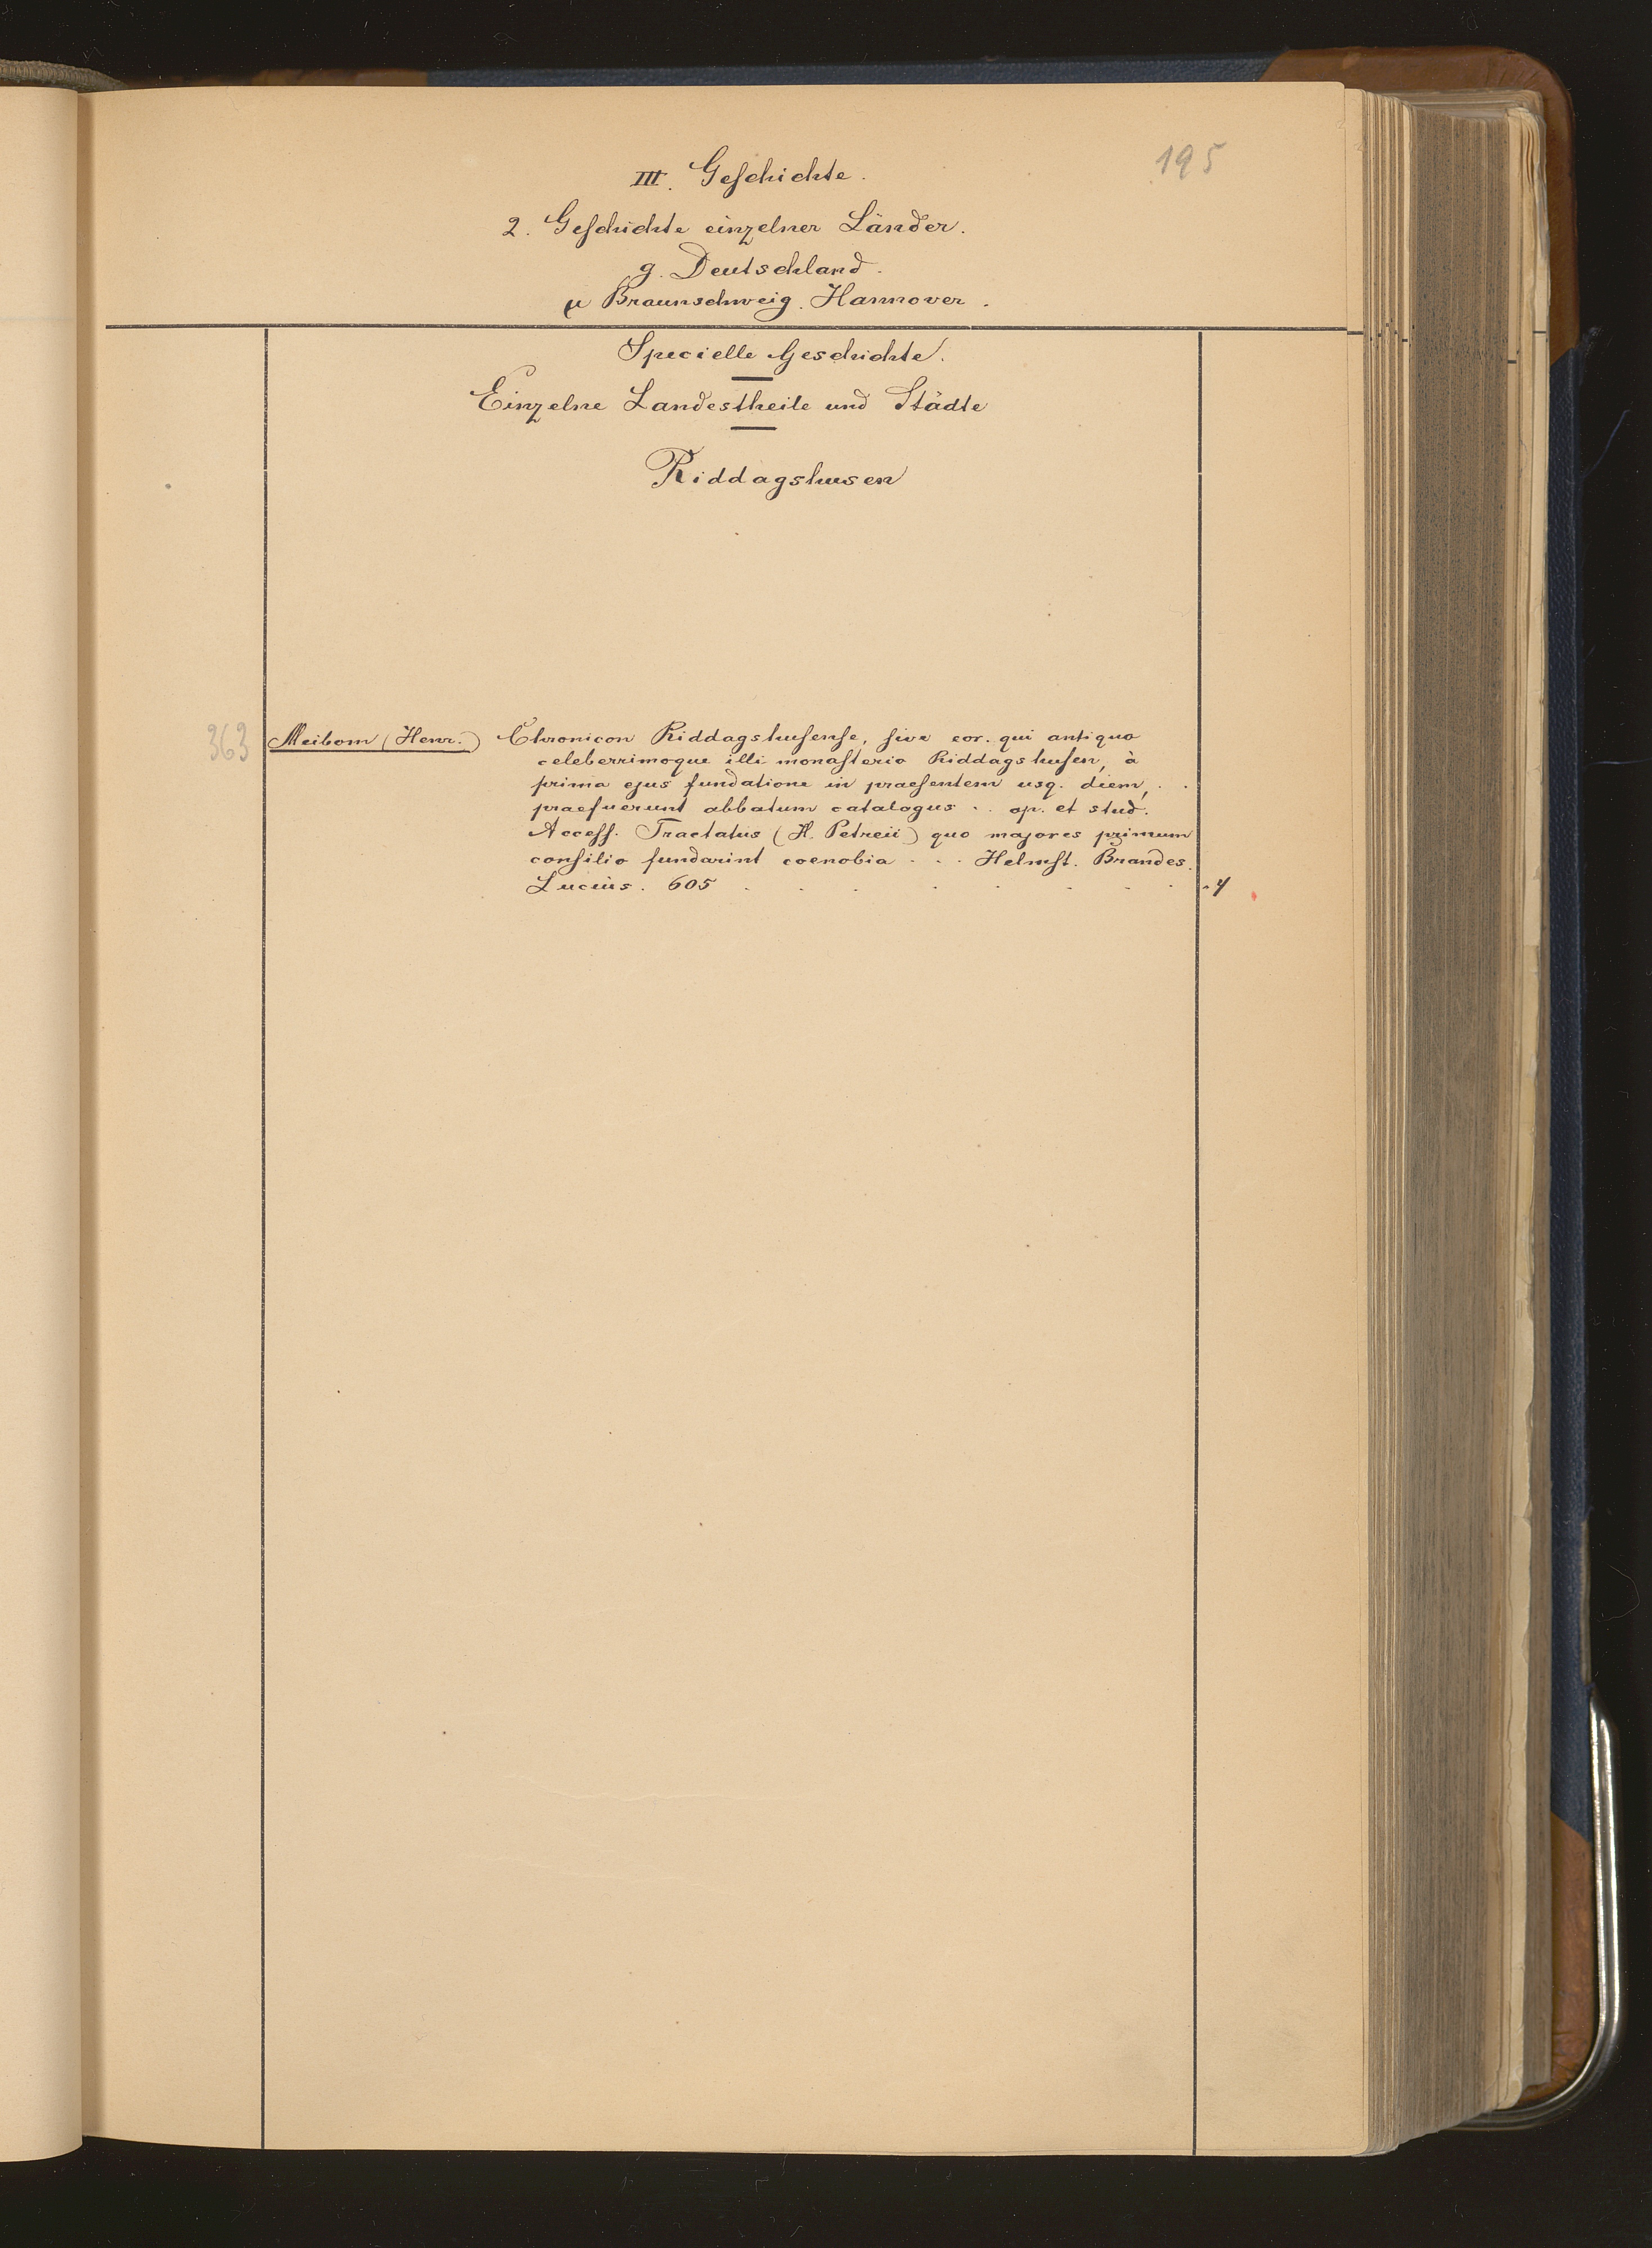 195
III. Geschichte.
2. Geschichte einzelner Länder.
g. Deutschland.
μ Braunschweig. Hannover.
Specielle Geschichte.
Einzelne Landestheile und Städte
Riddagshusen
363 Meibom (Henr.) Chronicon Riddagshusense, sive eor. qui antiquo
celeberrimoque illi monasterio Riddagshusen, à
prima ejus fundatione in praesentem usq. diem, . .
praefuerunt abbatum catalogus . . op. et stud.
Access. Tractatus (H. Petreii) quo majores primum
consilio fundarint coenobia . . . Helmst. Brandes.
Lucius. 605 . . . . . . . . 4